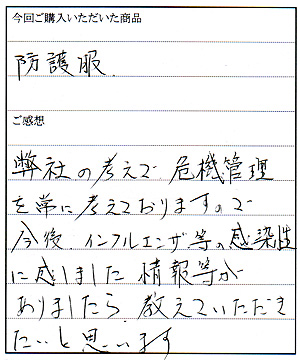 今回ご購入いただいた商品
防護服.
ご感想
弊社の考えで 危機管理
を常に考えておりますので
今後.インフルエンザ等の感染性
に感しました 情報等が
ありましたら 教えていただき
たいと思います